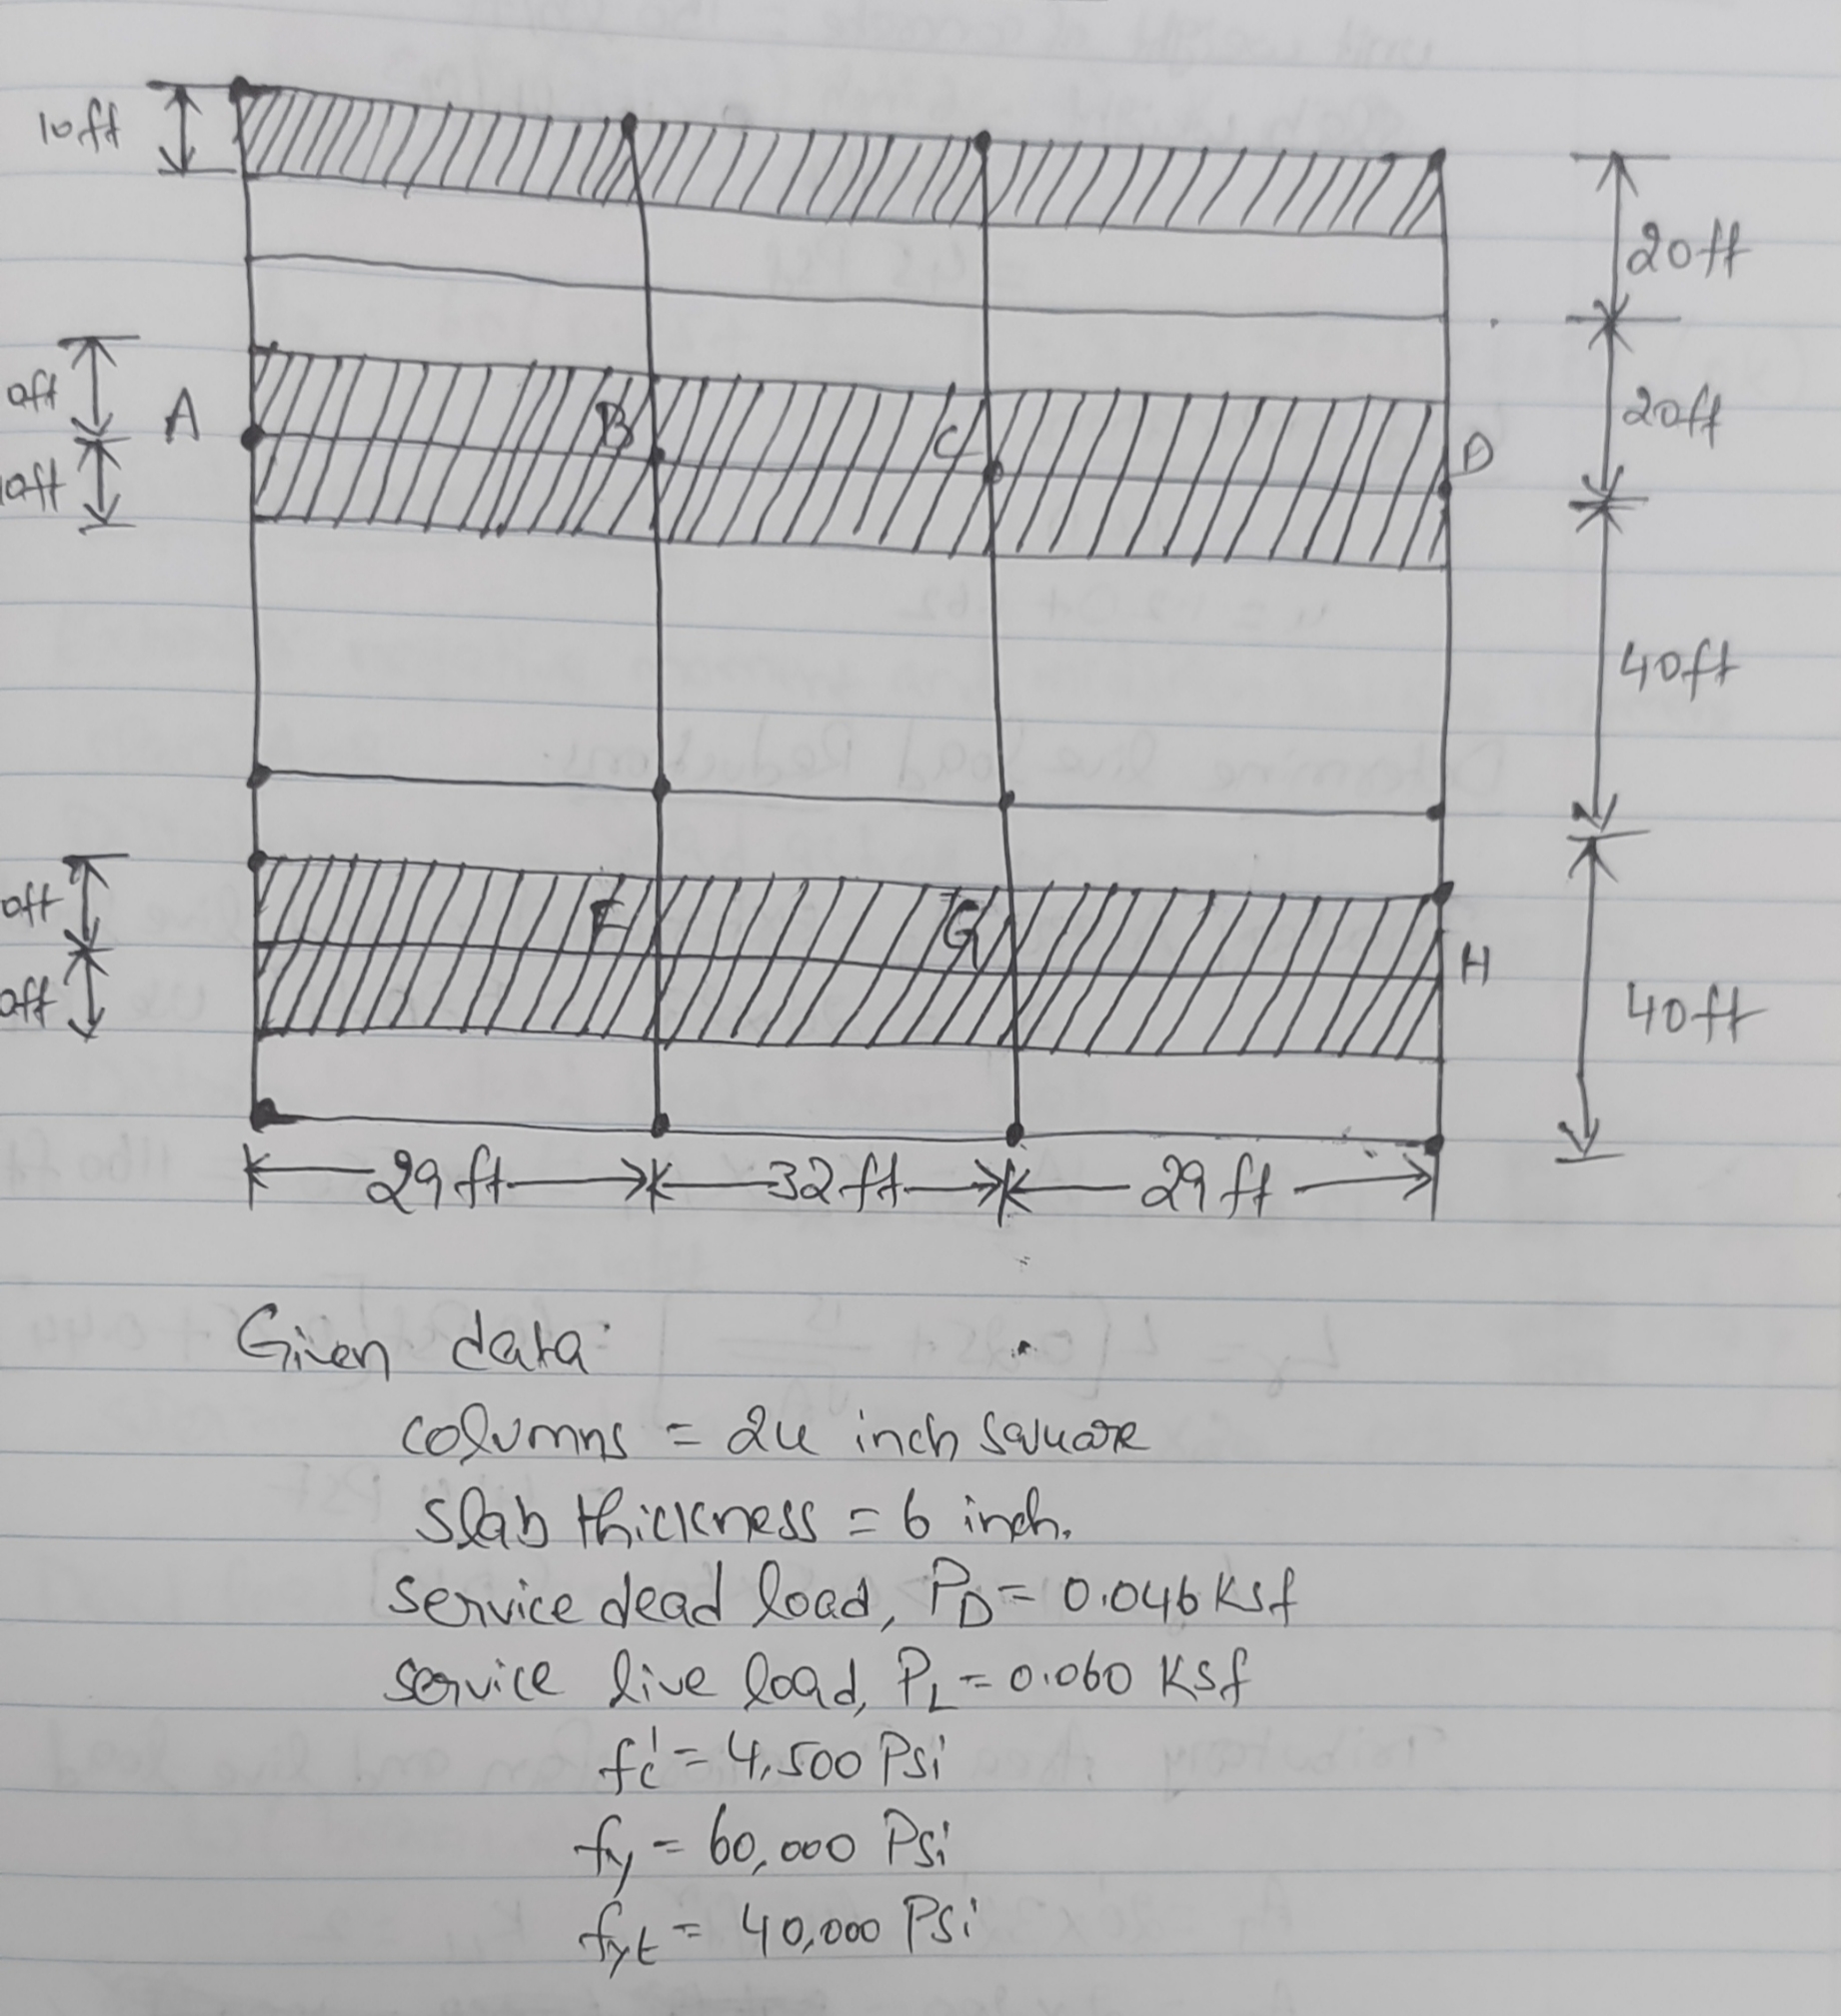 10ft
20ft
20ft
0ft
A
B
C
D
10ft
40ft
0ft
F
G
H
0ft
40ft
29 ft
32 ft
29 ft
Given data:
columns = 24 inch square
slab thickness = 6 inch.
service dead load, PD = 0.046 Ksf
service live load, PL = 0.060 Ksf
fc' = 4,500 Psi
fy = 60,000 Psi
fyt = 40,000 Psi